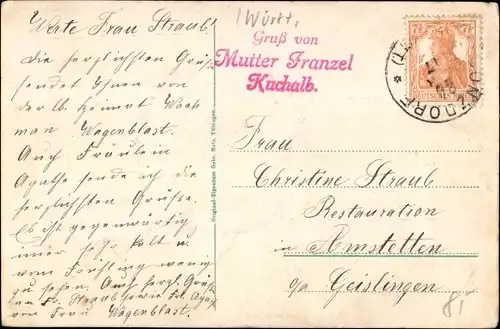 Werte Frau Straub!
die herzlichsten Grüße
sendet Ihnen von
der lb. Heimat
man Wagenblast.
Auch Fräulein
Agathe sende ich die
herzlichsten Grüße.
Es ist gegenwärtig
hier sehr kalt u.
vom Frühling wenig
zu sehen. Auch herzl. Grüße
Fr. Straub sowie Frl. Agathe
von Frau Wagenblast.
(Württ.
Gruß von
Mutter Franzel
Kuchalb.
7½
Frau
Christine Straub
Restauration
in Amstetten
o/a Geislingen
8,